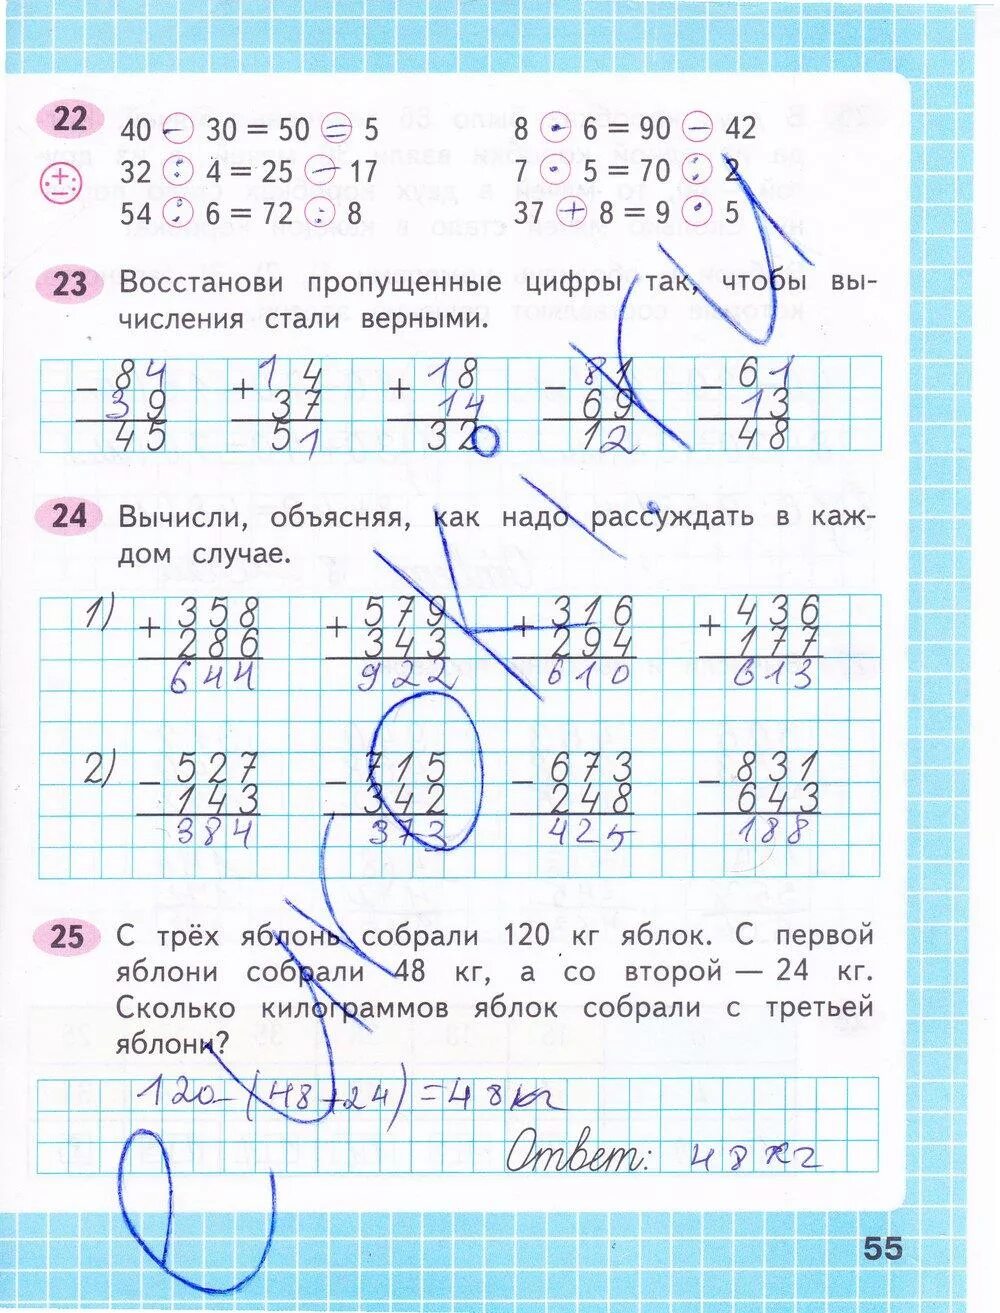 22
40 − 30 = 50 = 5
8 · 6 = 90 − 42
32 : 4 = 25 − 17
7 · 5 = 70 : 2
54 : 6 = 72 : 8
37 + 8 = 9 · 5
23 Восстанови пропущенные цифры так, чтобы вы-
числения стали верными.
− 84 + 14 + 18 − 81 − 61
39 37 14 69 13
45 51 32 12 48
24 Вычисли, объясняя, как надо рассуждать в каж-
дом случае.
1) + 358 + 579 + 316 + 436
286 343 294 177
644 922 610 613
2) − 527 − 715 − 673 − 831
143 342 248 643
384 373 425 188
25 С трёх яблонь собрали 120 кг яблок. С первой
яблони собрали 48 кг, а со второй — 24 кг.
Сколько килограммов яблок собрали с третьей
яблони?
120 − (48 + 24) = 48 кг
Ответ: 48 кг
55